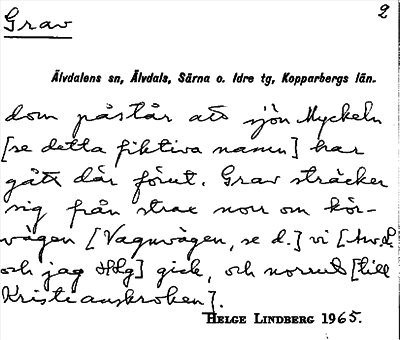 Grav
2
Älvdalens sn, Älvdals, Särna o. Idre tg, Kopparbergs län.
dom påstår att sjön Myckeln
[se detta fiktiva namn] har
gått där förut. Grav sträcker
sig från strax norr om kör-
vägen [Vagnvägen, se d.] vi [
och jag Hlg] gick, och norrut [till
Kristianskroken].
HELGE LINDBERG 1965.